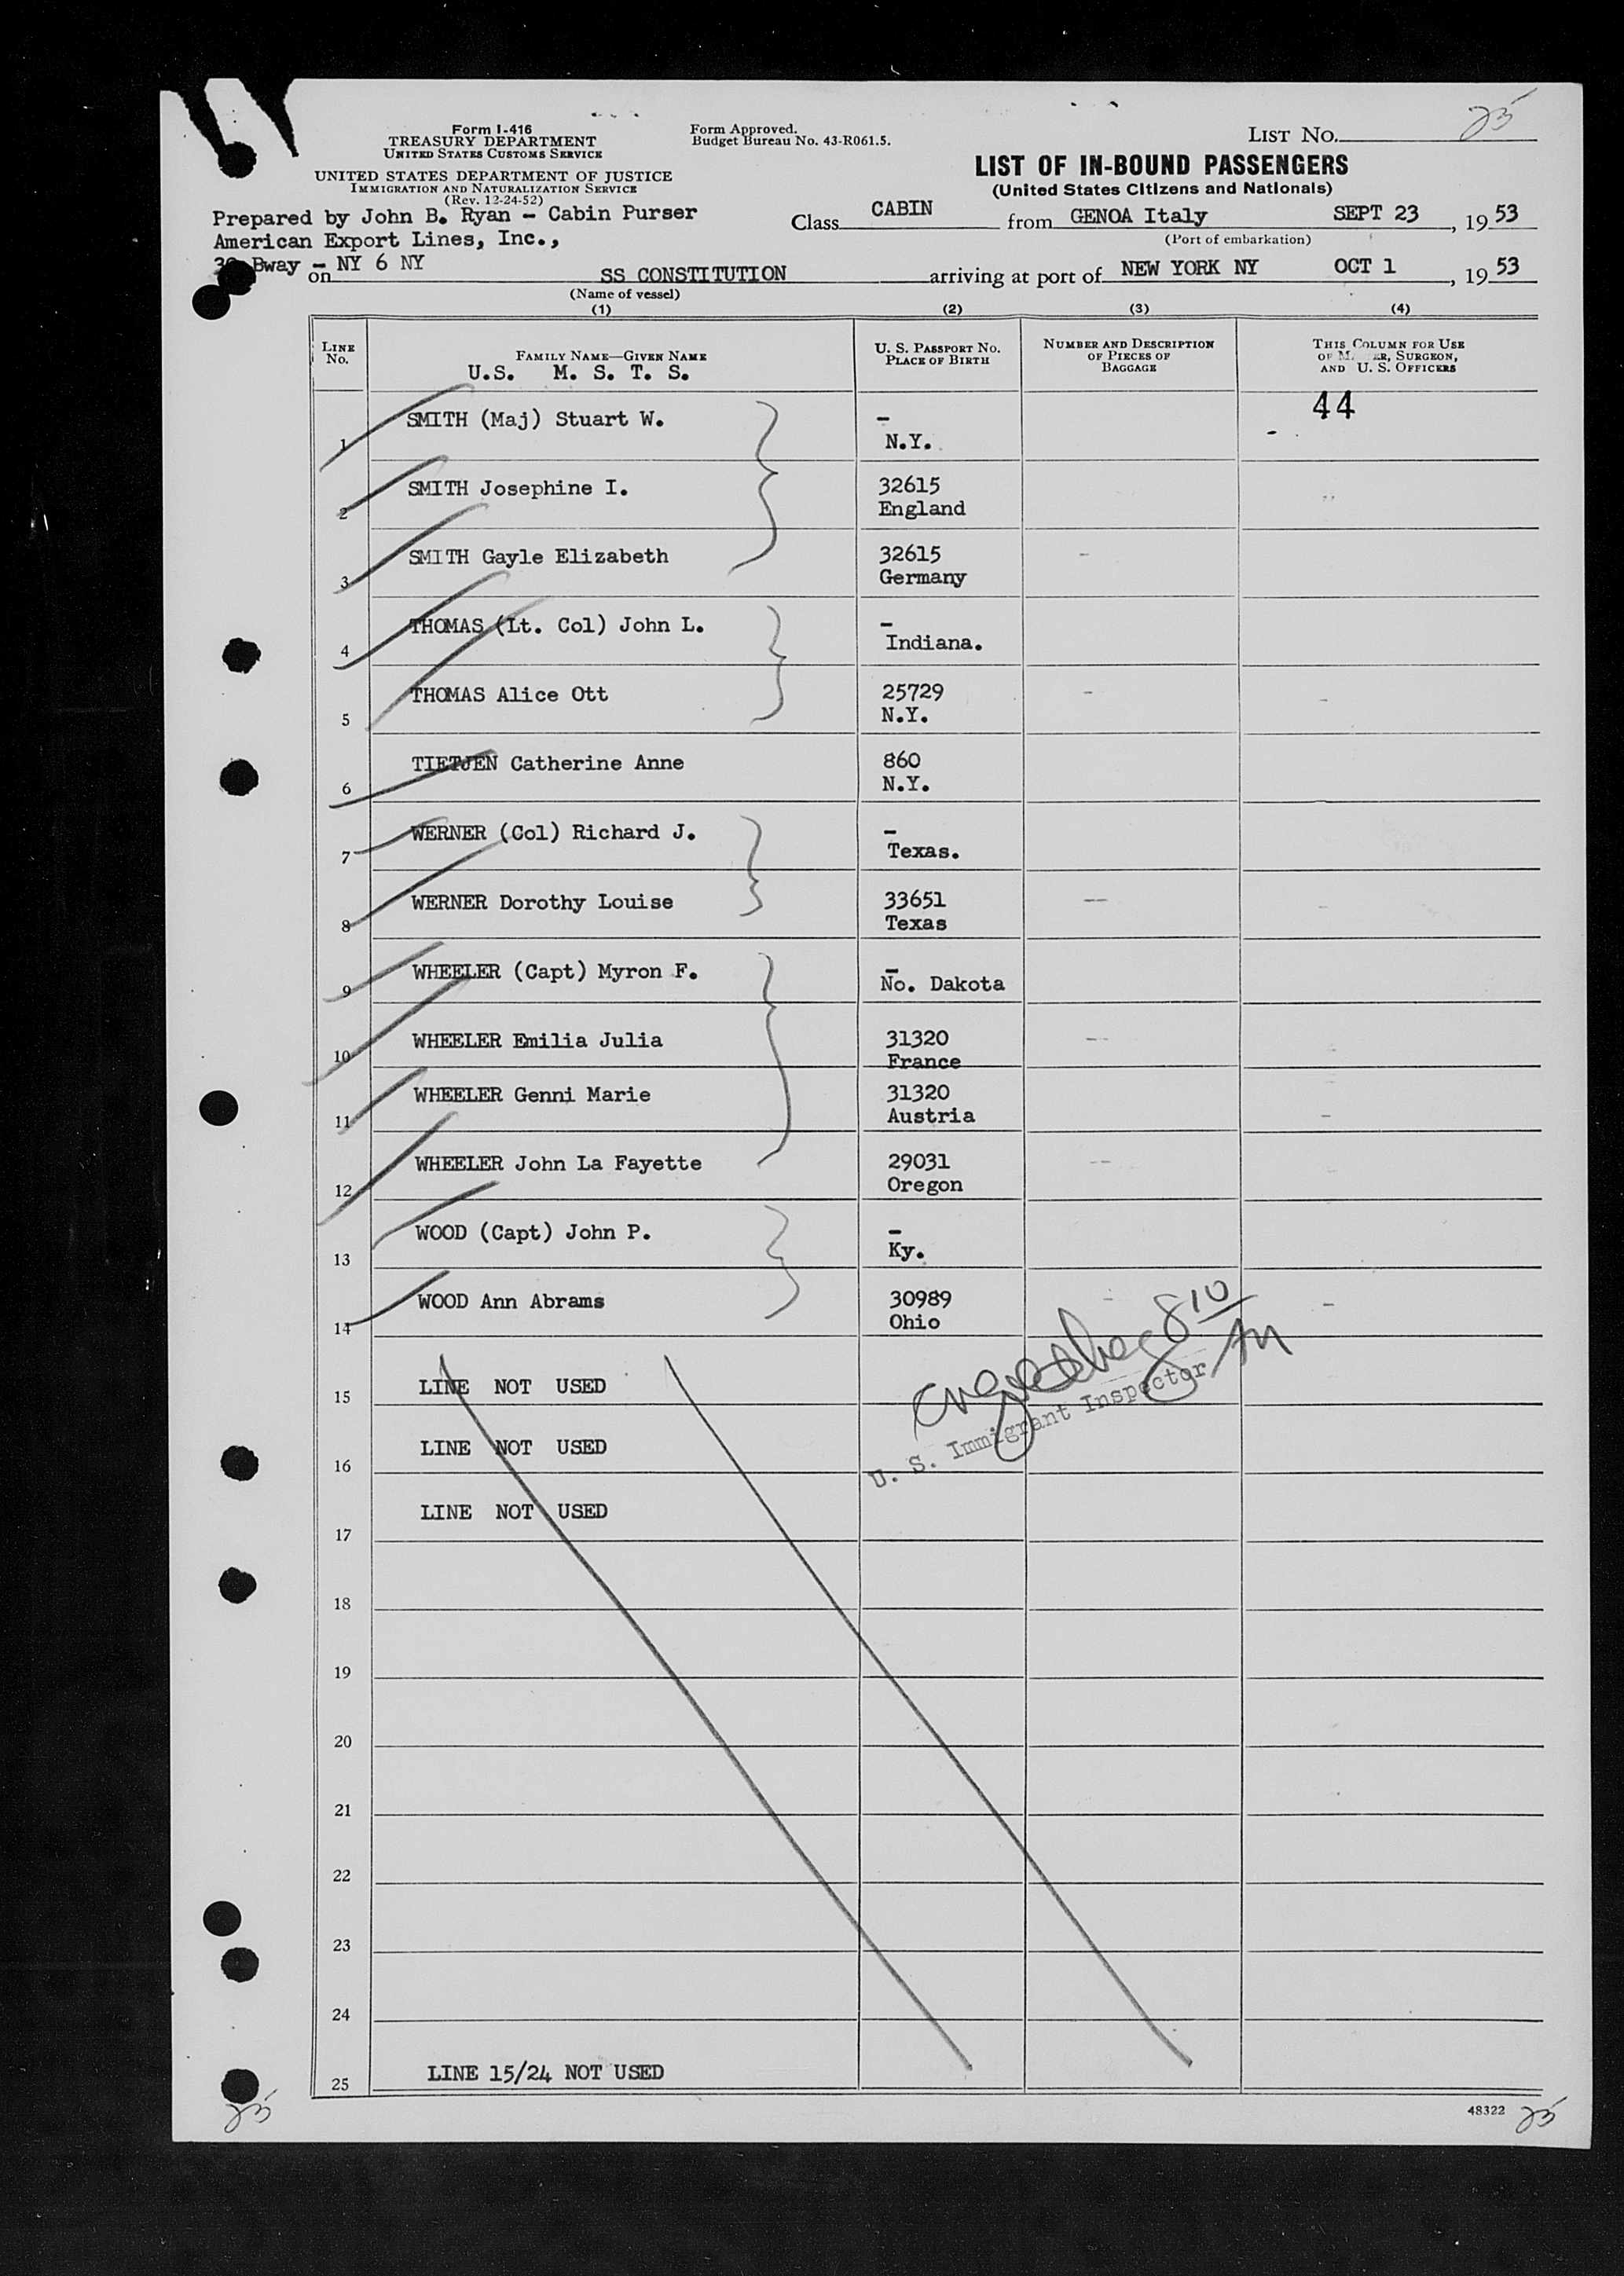 Form I-416
TREASURY DEPARTMENT
UNITED STATES CUSTOMS SERVICE
UNITED STATES DEPARTMENT OF JUSTICE
IMMIGRATION AND NATURALIZATION SERVICE
(Rev. 12-24-52)
Form Approved.
Budget Bureau No. 43-R061.5.
LIST No. 25
LIST OF IN-BOUND PASSENGERS
(United States Citizens and Nationals)
Prepared by John B. Ryan - Cabin Purser
American Export Lines, Inc.,
Bway - NY 6 NY
Class CABIN from GENOA Italy SEPT 23, 1953
(Port of embarkation)
on SS CONSTITUTION arriving at port of NEW YORK NY OCT 1, 1953
(Name of vessel)
(1) (2) (3) (4)
LINE No.
FAMILY NAME—GIVEN NAME
U.S. M. S. T. S.
U. S. PASSPORT No.
PLACE OF BIRTH
NUMBER AND DESCRIPTION
OF PIECES OF
BAGGAGE
THIS COLUMN FOR USE
OF SURGEON,
AND U. S. OFFICERS
44
1 SMITH (Maj) Stuart W. -
N.Y.
2 SMITH Josephine I. 32615
England
3 SMITH Gayle Elizabeth 32615 -
Germany
4 THOMAS (Lt. Col) John L. -
Indiana.
5 THOMAS Alice Ott 25729 - -
N.Y.
6 TIETJEN Catherine Anne 860
N.Y.
7 WERNER (Col) Richard J. -
Texas.
8 WERNER Dorothy Louise 33651 -- -
Texas
9 WHEELER (Capt) Myron F. -
No. Dakota
10 WHEELER Emilia Julia 31320 --
France
11 WHEELER Genni Marie 31320
Austria -
12 WHEELER John La Fayette 29031 --
Oregon
13 WOOD (Capt) John P. -
Ky.
14 WOOD Ann Abrams 30989 - -
Ohio
810
U. S. Immigrant Inspector
15 LINE NOT USED
16 LINE NOT USED
17 LINE NOT USED
18
19
20
21
22
23
24
25 LINE 15/24 NOT USED
48322
25 25